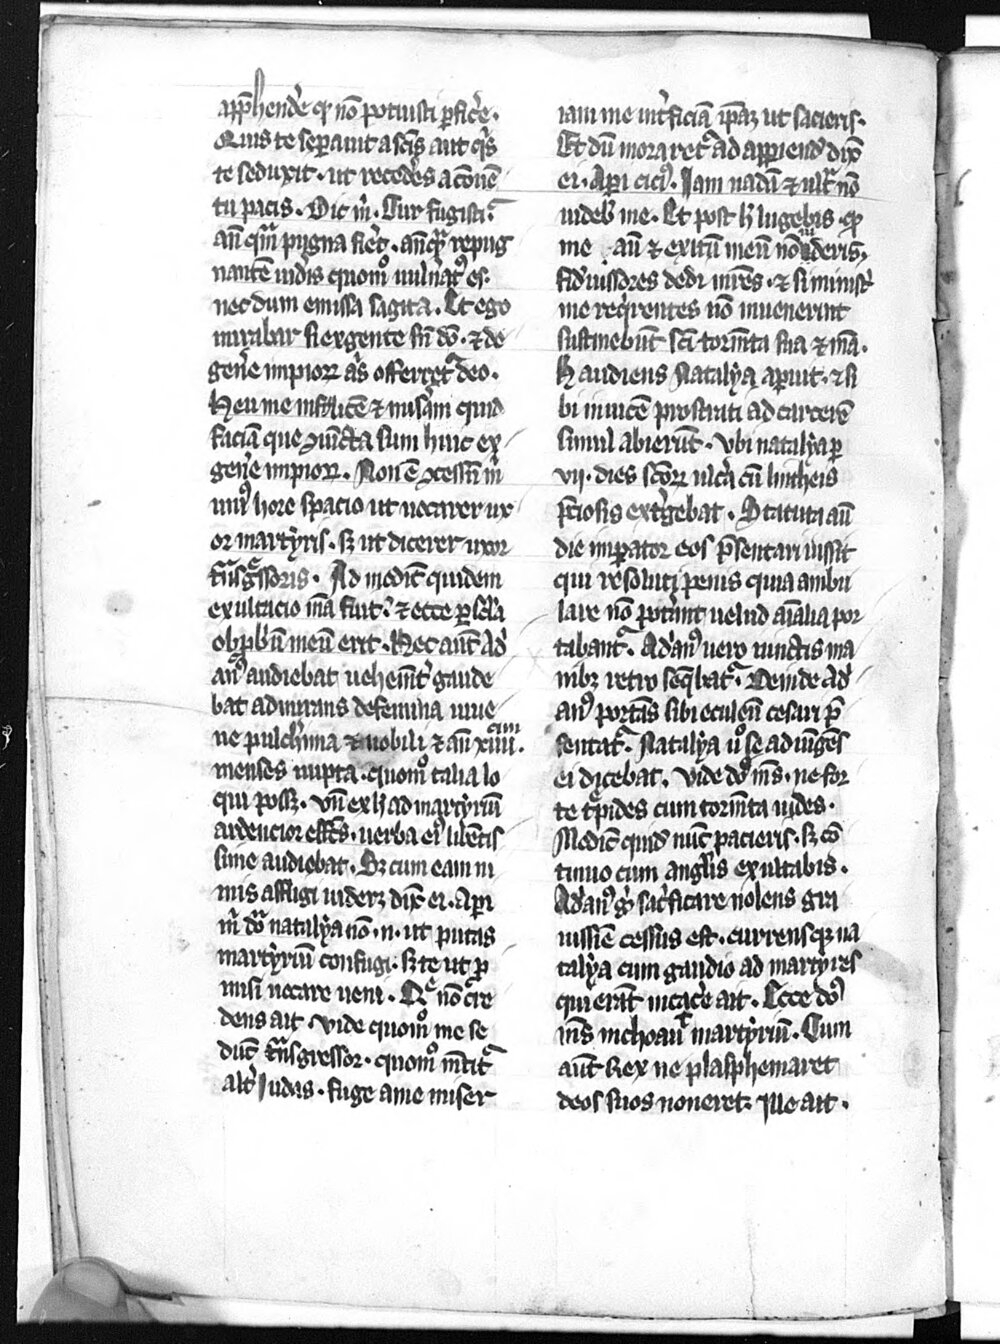 app̄hend̉e qͥ nō potuisti ꝑfic̉e.
Quis te seꝑauit a sc̄is aut qͥs
te seduxit. ut reced̉es a cōuē
tu pacis. Dic m̄. Cur fugisti?
an̄ qͣm pugna fier̉. an̄qͣ repug
nantē uid̉is quomͦ uuln̉atꝰ es.
nec dum emissa sagita. Et ego
mirabar si ex gente sn̄ dō. ⁊ de
gen̉e impioꝝ aͥs offerretᷣ deo.
Heu me infelicē ⁊ misͣam quid
faciā que ꝯiūcta sum huic ex
gen̉e impioꝝ. Non ē ꝯcessū m̄
uniꝰ hore spacio ut uocarer ux
or martyris. sꝫ ut dicerer uxor
tͣnsgͣssoris. Ad modic̄ quidem
exultacio m̄a fuit. ⁊ ecce ꝑ sc̄la
obꝓbͥū meū erit. Hec aut̄ Ad̉
anꝰ audiebat uehem̄t̉ gaude
bat admirans de femina iuue
ne pulch̉rima ⁊ nobili ⁊ an̄ xiiii.
menses nupta. quomͦ talia lo
qui posꝫ. Vn̄ ex h̉ ad martyriū
ardencior effc̄s. uerba eiꝰ libētis
sime audiebat. Sꝫ cum eam ni
mis affligi uiderꝫ dix̄ ei. Aperi
m̄ dn̄a natalya nō .n. ut putas
martyriū confugi. sꝫ te ut ꝓ
misi uocare ueni. Qͤ nō cͤre
dens ait. Vide quomͦ me se
duc̄ tͣnsgressor. quomͦ m̄titᷣ
alt̉ Iudas. fuge a me miser
iam me int̉ficiā ip̄aꝫ ut sacieris.
Et dū moraretᷣ ad apperiend̉ dix̄
ei. Aperi ciciꝰ. Iam uadā ⁊ ultͣ nō
uideb̉ me. Et post h̉ lugebis. qͣ
me an̄ ⁊ exitū meū nō uideris,
fideiussores dedi mr̄es. ⁊ si minist̉
me req̉rentes nō inuenerint
sustinebūt sc̄i torm̄ta sua ⁊ m̄a.
H̉ audiens Natalya aperuit. ⁊ si
bi inuicē prostrati ad carcerē
simul abierūt. Vbi natalya ꝑ
vii. dies sc̄oꝝ ulc̉a cū lintheis
p̄ciosis ext̉gebat. Statuta aū
die imꝑator eos p̄sentari iussit
qui resoluti penis quia ambu
lare nō pot̉ant uelud aīalia por
tabantᷣ. Ad̉anꝰ uero iunctis ma
nibꝫ retro seq̄batᷣ. Deinde Ad̉
anꝰ portās sibi eculeū cesari p̄
sentatᷣ. Natalya uͦ se adiūgēs
ei dicebat. Vide dn̄e m̄s. ne for
te tͤpides cum torm̄ta uides.
Modic̄ quid nūc pacieris. sꝫ cō
tinuo cum angl̉is exultabis.
Ad̉anꝰ gͦ sac̉ficare nolens gra
uissie cessus est. currensqꝫ na
talya cum gaudio ad martyres
qui erāt in carc̉e ait. Ecce dn̄s
m̄s inchoauͭ martyriū. Cum
aut̄ Rex ne plasphemaret
deos suos moneret. ille ait.